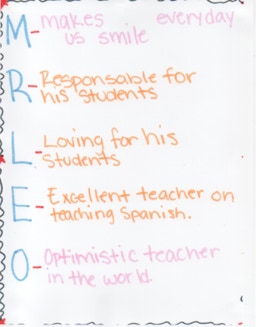 M-makes everyday
us smile
R-Responsable for
his students
L-Loving for his
Students
E-Excellent teacher on
teaching Spanish.
O-Optimistic teacher
in the world.